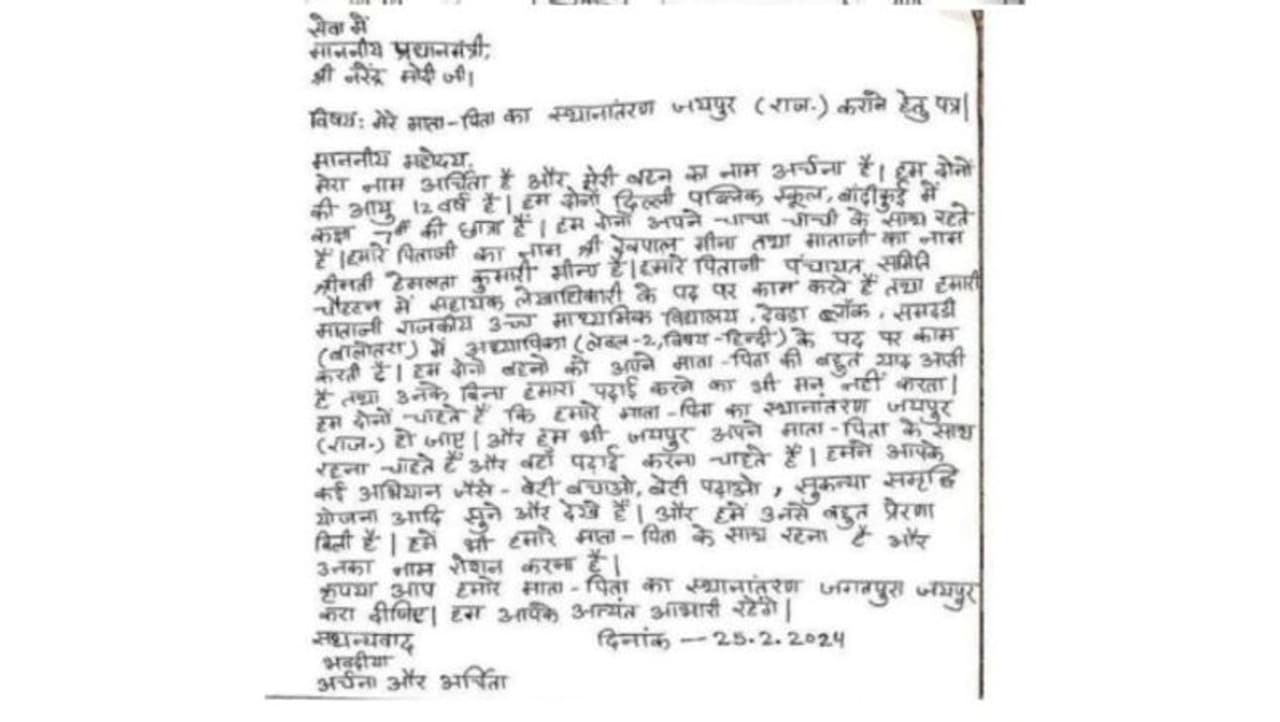 सेवा में
माननीय प्रधानमंत्री,
श्री नरेंद्र मोदी जी।
विषय: मेरे माता-पिता का स्थानांतरण जयपुर (राज.) कराने हेतु पत्र|
माननीय महोदय,
मेरा नाम अर्चिता है और मेरी बहन का नाम अर्चना है। हम दोनों
की आयु 12 वर्ष है। हम दोनों दिल्ली पब्लिक स्कूल, बांदीकुई में
कक्षा 7th की छात्रा हैं। हम दोनों अपने चाचा चाची के साथ रहते
हैं। हमारे पिताजी का नाम श्री देवपाल मीना तथा माताजी का नाम
श्रीमती हेमलता कुमारी मीना है। हमारे पिताजी पंचायत समिति
चौहटन में सहायक लेखाधिकारी के पद पर काम करते हैं तथा हमारी
माताजी राजकीय उच्च माध्यमिक विद्यालय, देवडा ब्लॉक, समदडी
(बालोतरा) में अध्यापिका (लेवल-2, विषय-हिन्दी) के पद पर काम
करती हैं। हम दोनों बहनों को अपने माता-पिता की बहुत याद आती
है तथा उनके बिना हमारा पढ़ाई करने का भी मन नहीं करता।
हम दोनों चाहते हैं कि हमारे माता-पिता का स्थानांतरण जयपुर
(राज.) हो जाए। और हम भी जयपुर अपने माता-पिता के साथ
रहना चाहते हैं और वहाँ पढ़ाई करना चाहते हैं। हमने आपके
कई अभियान जैसे- बेटी बचाओ, बेटी पढ़ाओ, सुकन्या समृद्धि
योजना आदि सुने और देखे हैं। और हमें उनसे बहुत प्रेरणा
मिली है। हमें भी हमारे माता-पिता के साथ रहना है और
उनका नाम रोशन करना है।
कृपया आप हमारे माता-पिता का स्थानांतरण जगतपुरा जयपुर
करा दीजिए। हम आपके अत्यंत आभारी रहेंगे।
सधन्यवाद दिनांक — 25.2.2024
भवदीया
अर्चना और अर्चिता